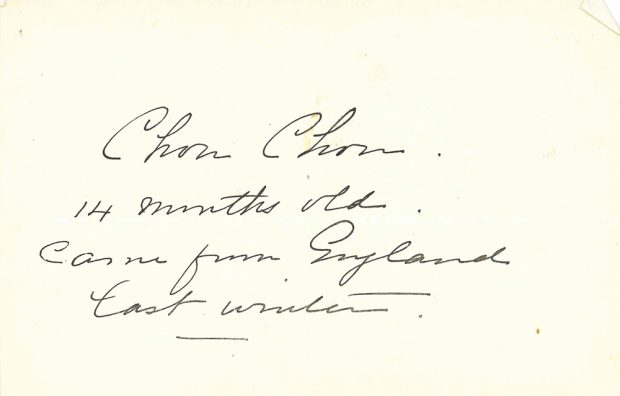 Chou Chou.
14 months old.
Came from England
Last winter.